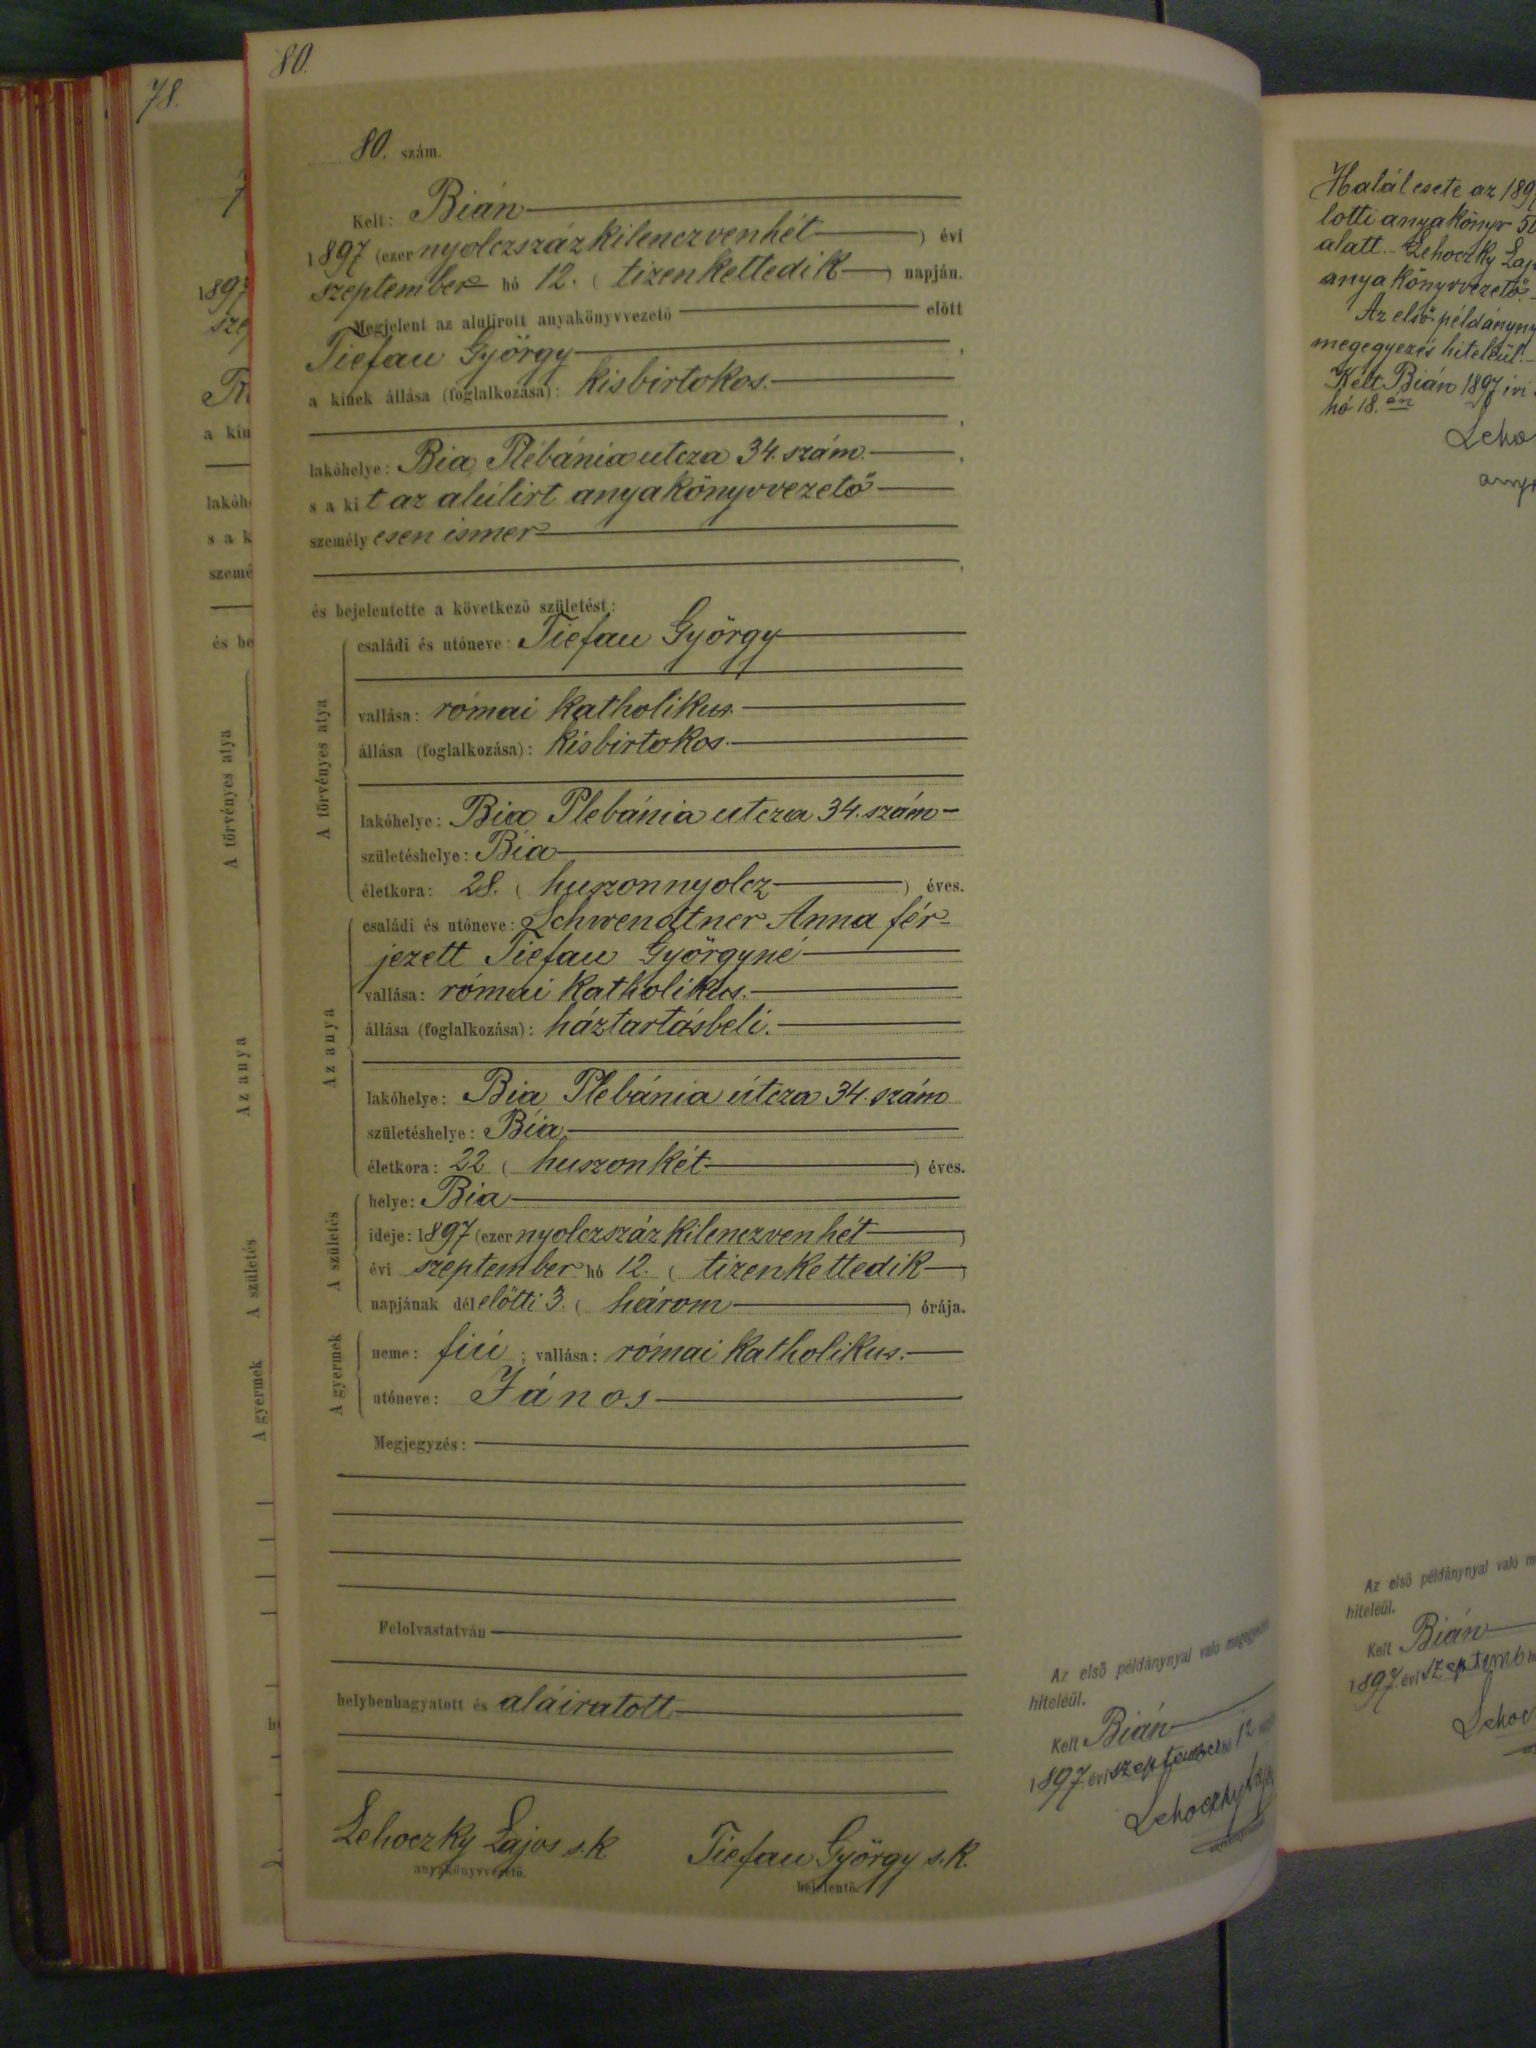 78.
80.
80. szám.
Kelt: Bián
1897 (ezer nyolczszázkilenczvenhét) évi
szeptember hó 12. (tizenkettedik) napján.
Megjelent az alulirott anyakönyvvezető előtt
Tiefau György,
a kinek állása (foglalkozása): kisbirtokos.
lakóhelye: Bia, Plébánia utcza 34. szám.,
s a kit az alúlirt anyakönyvvezető
személyesen ismer
és bejelentette a következő születést:
A törvényes atya
családi és utóneve: Tiefau György
vallása: római katholikus.
állása (foglalkozása): kisbirtokos.
lakóhelye: Bia Plebánia utcza 34. szám
születéshelye: Bia
életkora: 28. (huszonnyolcz) éves.
Az anya
családi és utóneve: Schwendtner Anna fér-
jezett Tiefau Györgyné
vallása: római katholikus.
állása (foglalkozása): háztartásbeli.
lakóhelye: Bia Plebánia útcza 34. szám
születéshelye: Bia,
életkora: 22 (huszonkét) éves.
A születés
helye: Bia
ideje: 1897 (ezer nyolczszázkilenczvenhét)
évi szeptember hó 12. (tizenkettedik)
napjának délelőtti 3. (három) órája.
A gyermek
neme: fiú; vallása: római katholikus.
utóneve: János
Megjegyzés:
Felolvastatván
helybenhagyatott és aláiratott
Lehoczky Lajos s.k.
anyakönyvvezető.
Tiefau György s.k.
bejelentő.
Az első példánynyal való megegyezés
hiteléül.
Kelt Bián
1897. évi szeptember hó 12
Lehoczky Lajos
1897
a kin
lakóh
s a k
szemé
és be
A törvényes atya
Az anya
A születés
A gyermek
Halálesete az 189
lotti anyakönyv 50
alatt.- Lehoczky Laj
anyakönyvvezető.-
Az első példányny
megegyezés hiteléül.-
Kelt Bián 1897 évi
hó 18.án
Leho
any
Az első példánynyal való m
hiteléül.
Kelt Bián
1897. évi szeptemb
Lehoc